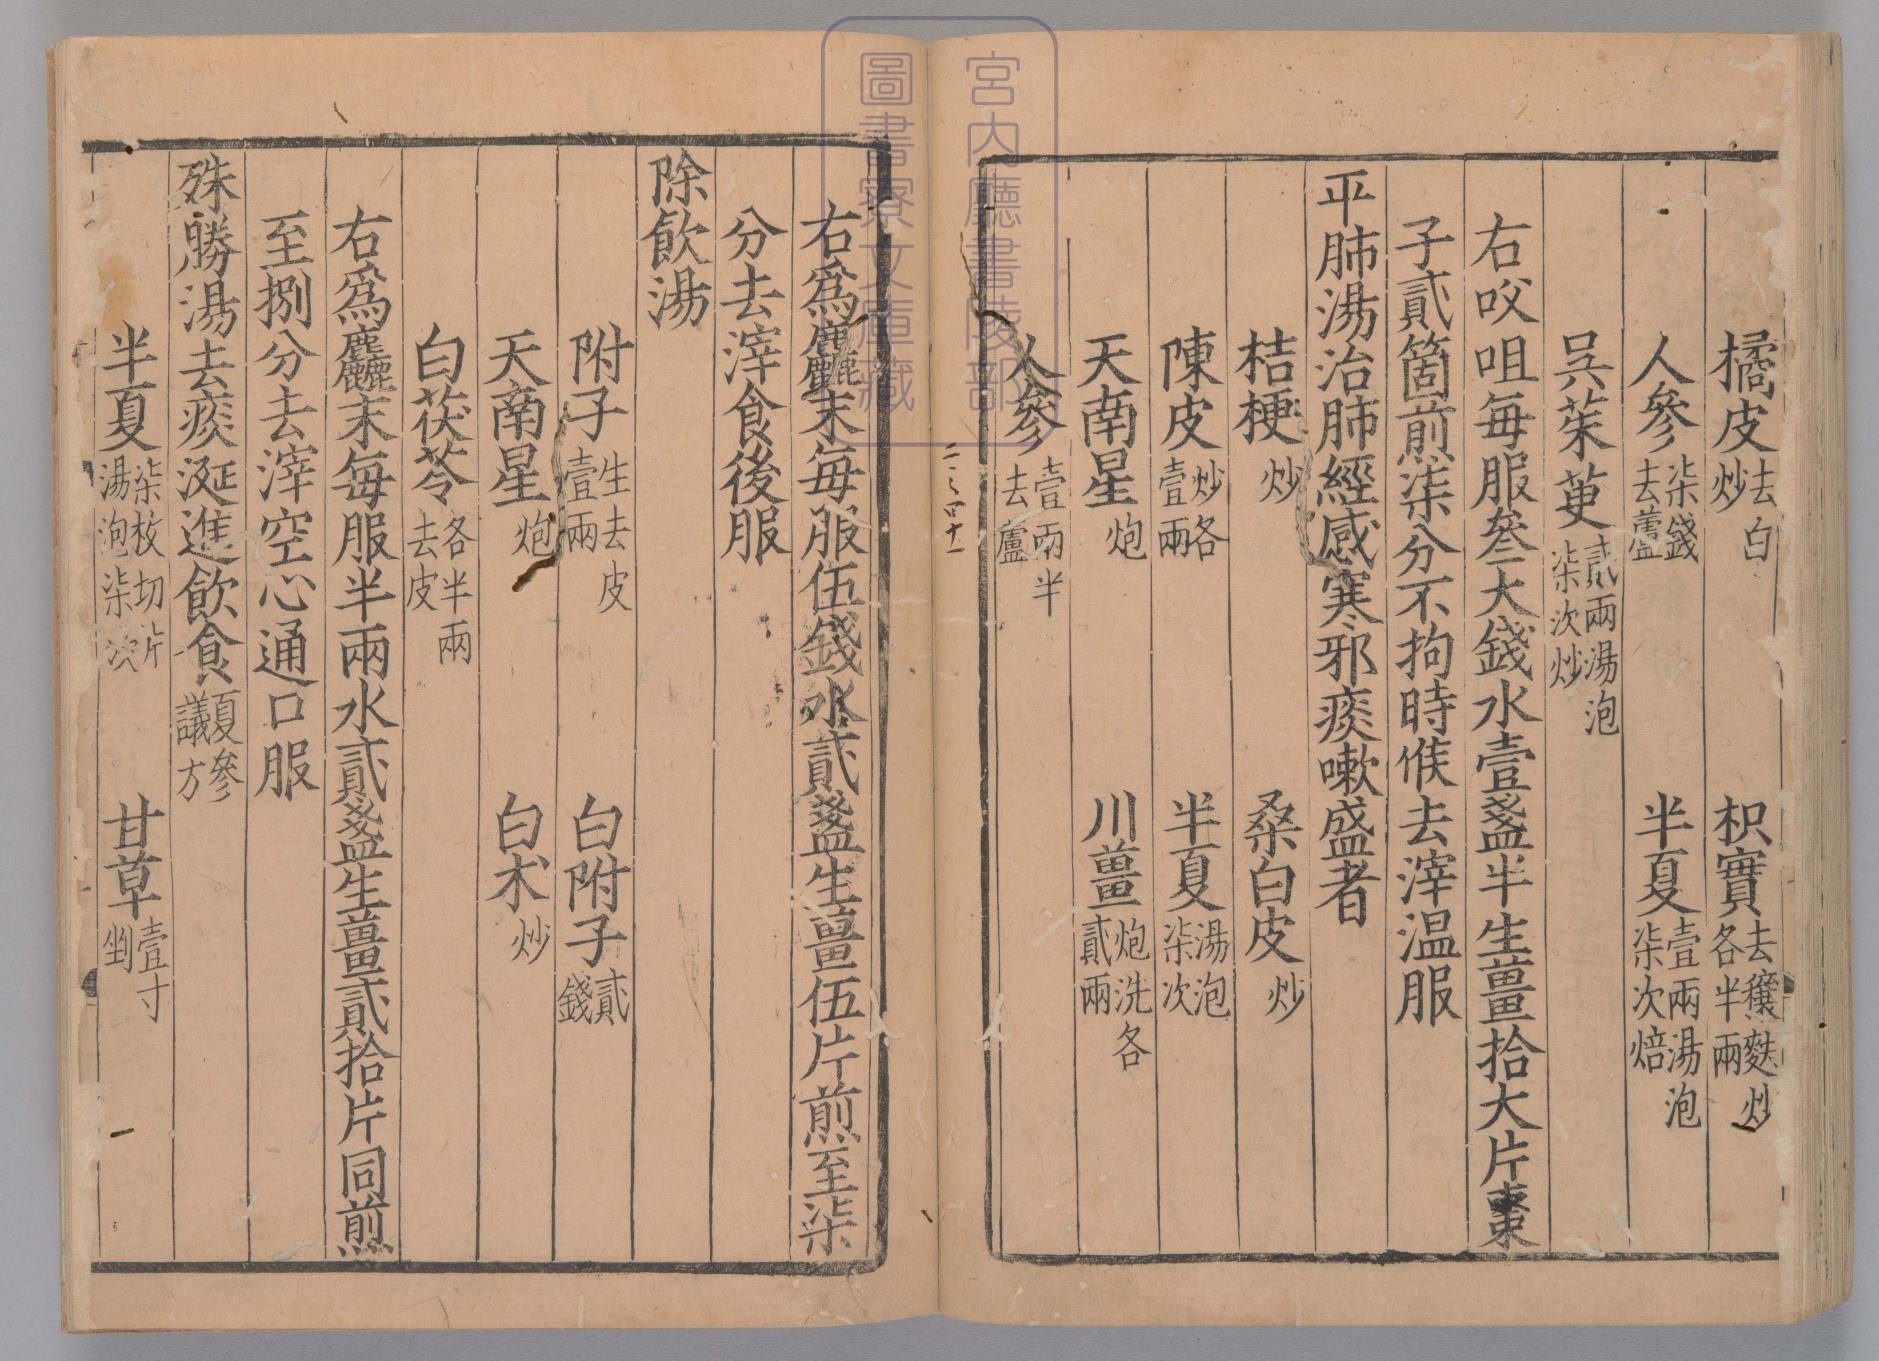 橘皮去白炒 枳實去穰麩炒各半兩
人參柒錢去蘆 半夏壹兩湯泡柒次焙
吳茱萸貳兩湯泡柒次炒
右㕮咀每服叁大錢水壹盞半生薑拾大片棗
子貳箇煎柒分不拘時候去滓温服
平肺湯治肺經感寒邪痰嗽盛者
桔梗炒 桑白皮炒
陳皮炒各壹兩 半夏湯泡柒次
天南星炮 川薑炮洗各貳兩
人參壹兩半去蘆
二之四十一
右爲麤末每服伍錢水貳盞生薑伍片煎至柒
分去滓食後服
除飲湯
附子生去皮壹兩 白附子貳錢
天南星炮 白朮炒
白茯苓各半兩去皮
右爲麤末每服半兩水貳盞生薑貳拾片同煎
至捌分去滓空心通口服
殊勝湯去痰涎進飲食夏參議方
半夏柒枚切片湯泡柒次 甘草壹寸剉
宮内廳書陵部
圖書寮文庫藏